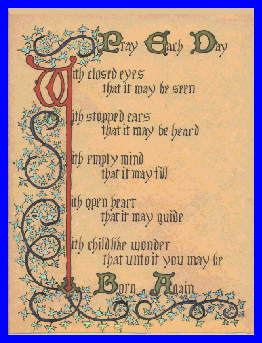 Pray Each Day
With closed eyes
that it may be seen
With stopped ears
that it may be heard
With empty mind
that it may fill
With open heart
that it may guide
With childlike wonder
that unto it you may be
Born Again